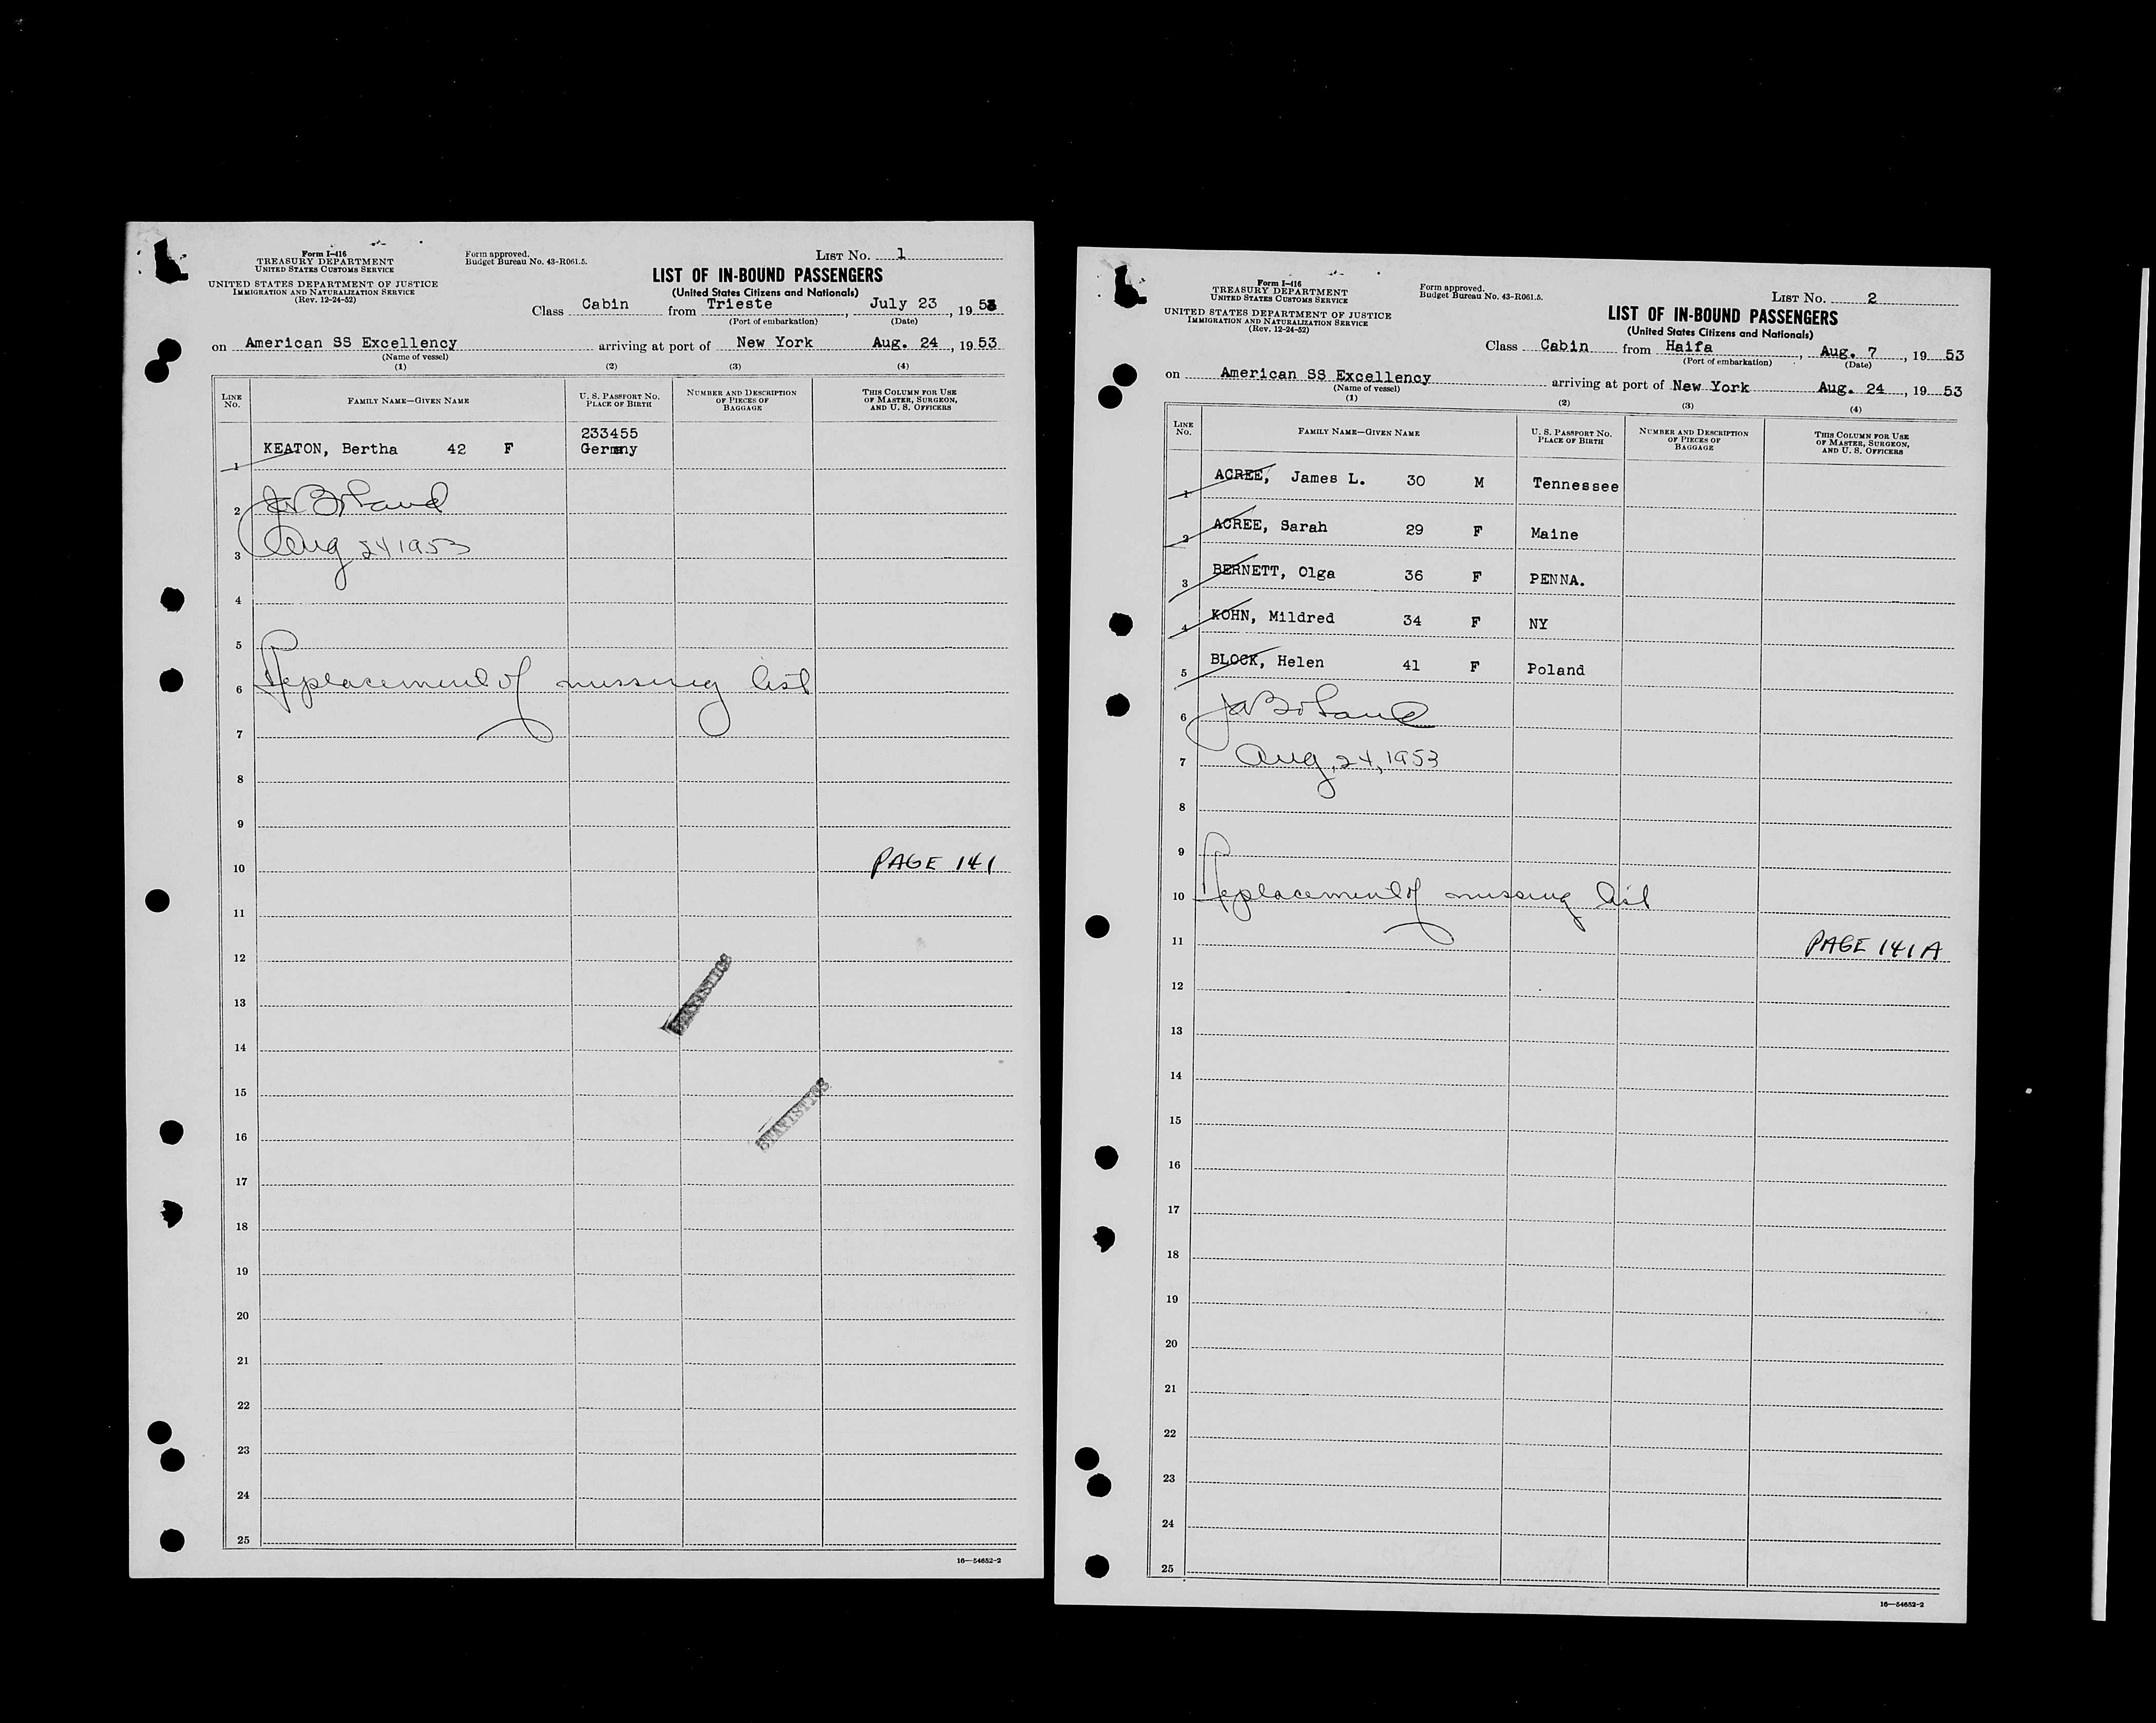 Form I-416
TREASURY DEPARTMENT
UNITED STATES CUSTOMS SERVICE
UNITED STATES DEPARTMENT OF JUSTICE
IMMIGRATION AND NATURALIZATION SERVICE
(Rev. 12-24-52)
Form approved.
Budget Bureau No. 43-R061.5.
LIST No. 1
LIST OF IN-BOUND PASSENGERS
(United States Citizens and Nationals)
Class Cabin from Trieste, July 23, 1953
(Port of embarkation) (Date)
on American SS Excellency arriving at port of New York Aug. 24, 1953
(Name of vessel)
(1) (2) (3) (4)
LINE No. FAMILY NAME—GIVEN NAME U. S. PASSPORT No. PLACE OF BIRTH NUMBER AND DESCRIPTION OF PIECES OF BAGGAGE THIS COLUMN FOR USE OF MASTER, SURGEON, AND U. S. OFFICERS
233455
1 KEATON, Bertha 42 F Germany
2
3 Aug 24 1953
4
5
6 Replacement of missing list
7
8
9
10 PAGE 141
11
12
13 STATISTICS
14
15
16 STATISTICS
17
18
19
20
21
22
23
24
25
16—54652-2
Form I-416
TREASURY DEPARTMENT
UNITED STATES CUSTOMS SERVICE
UNITED STATES DEPARTMENT OF JUSTICE
IMMIGRATION AND NATURALIZATION SERVICE
(Rev. 12-24-52)
Form approved.
Budget Bureau No. 43-R061.5.
LIST No. 2
LIST OF IN-BOUND PASSENGERS
(United States Citizens and Nationals)
Class Cabin from Haifa, Aug. 7, 1953
(Port of embarkation) (Date)
on American SS Excellency arriving at port of New York Aug. 24, 1953
(Name of vessel)
(1) (2) (3) (4)
LINE No. FAMILY NAME—GIVEN NAME U. S. PASSPORT No. PLACE OF BIRTH NUMBER AND DESCRIPTION OF PIECES OF BAGGAGE THIS COLUMN FOR USE OF MASTER, SURGEON, AND U. S. OFFICERS
1 ACREE, James L. 30 M Tennessee
2 ACREE, Sarah 29 F Maine
3 BERNETT, Olga 36 F PENNA.
4 KOHN, Mildred 34 F NY
5 BLOCK, Helen 41 F Poland
6
7 Aug, 24, 1953
8
9
10 Replacement of missing list
11 PAGE 141A
12
13
14
15
16
17
18
19
20
21
22
23
24
25
16—54652-2